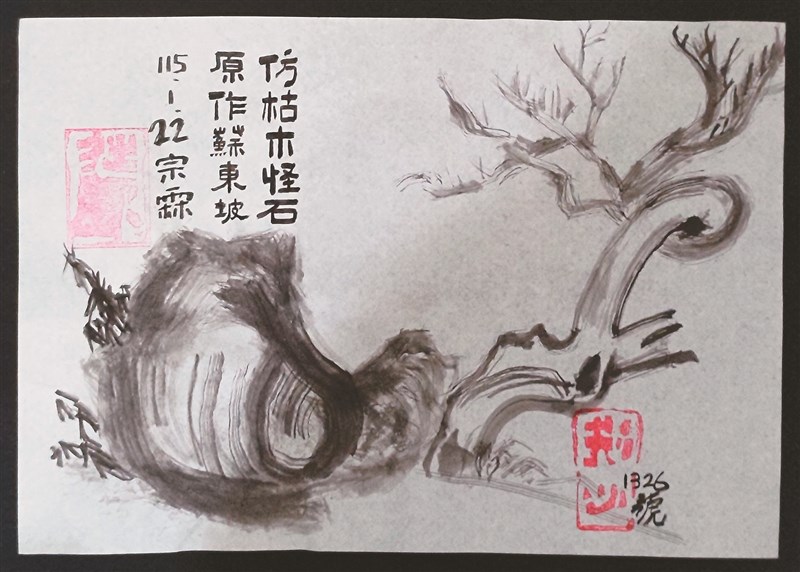 仿枯木怪石
原作蘇東坡
115.1.22 宗霖
1326
號